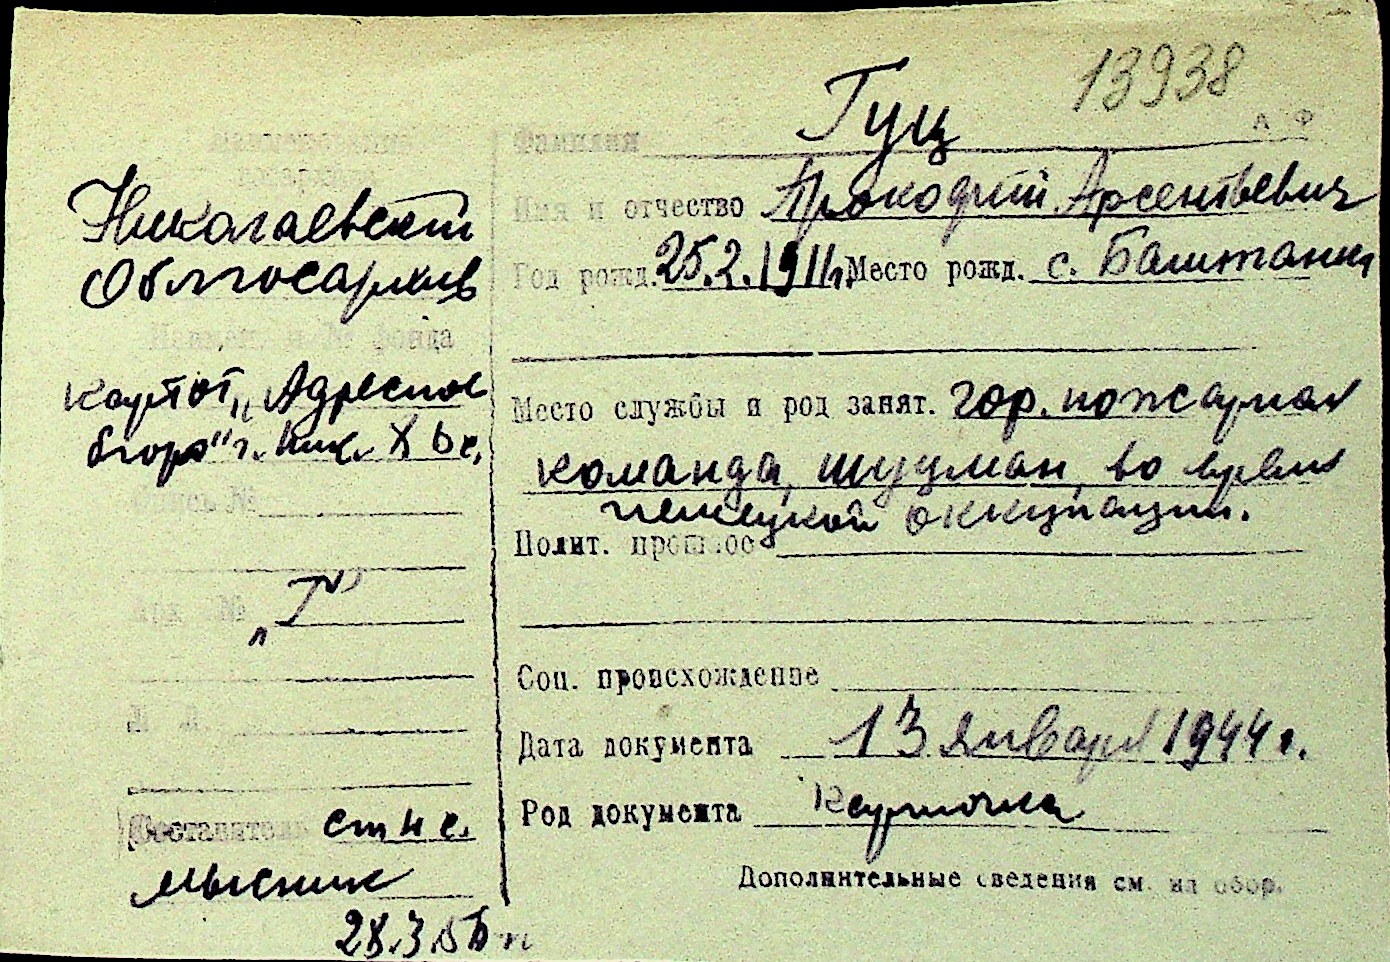 13938
А Ф
Фамилия Гуц
Имя и отчество Прокофий Арсентьевич
Год рожд. 25.2.1911г. Место рожд. с. Баштанки
Место службы и род занят. гор. пожарная
команда, шуцман, во время
немецкой оккупации.
Полит. прошлое
Соц. происхождение
Дата документа 13 января 1944 г.
Род документа Карточка
Дополнительные сведения см. на обор.
Николаевский
Облгосархив
Наимен. и № фонда
картот. „Адресное
бюро" г. Ник.
Опись №
„Г"
Составитель ст н с.
Мысник
28.3.